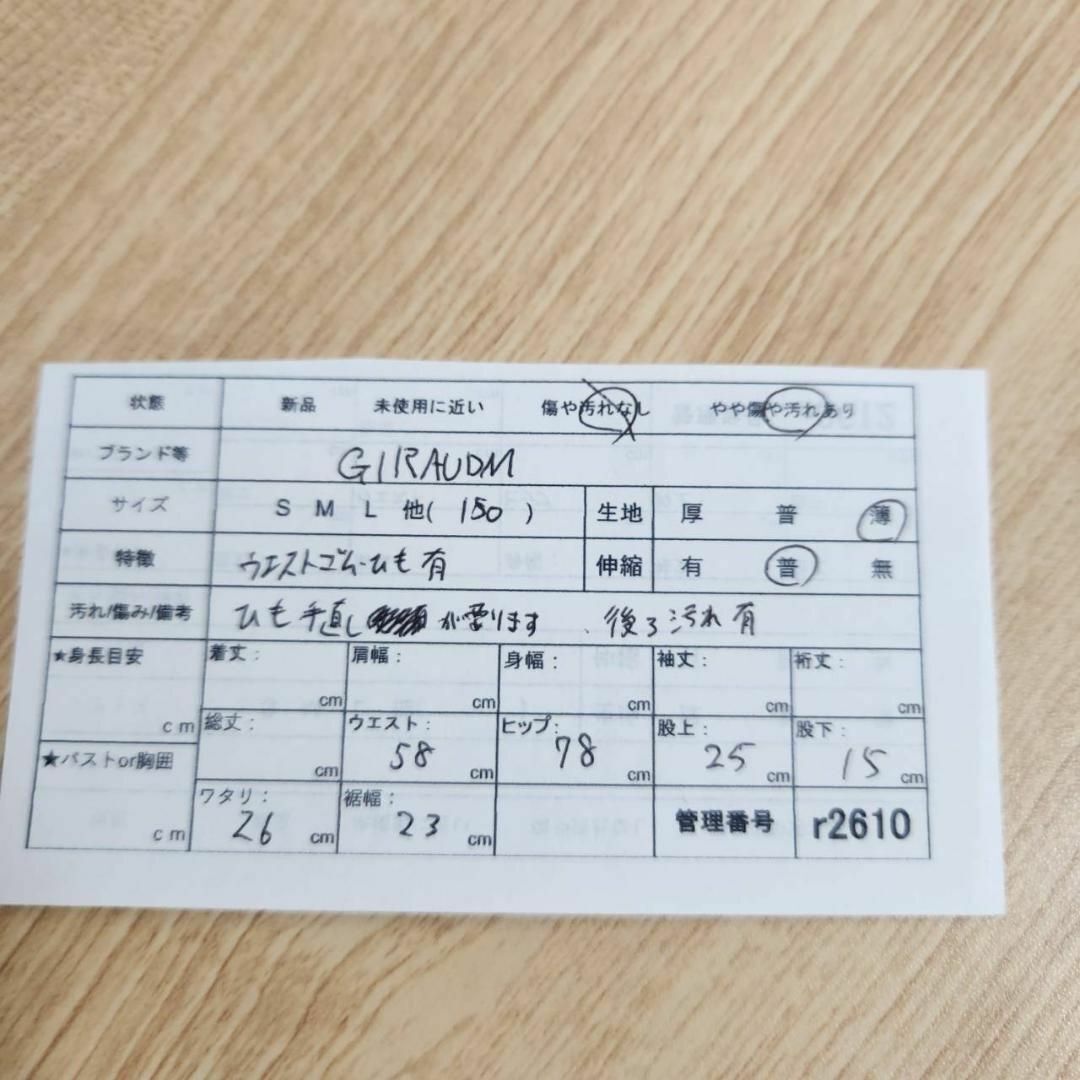 状態 新品 未使用に近い 傷や汚れなし やや傷や汚れあり
ブランド等 GIRAUDM
サイズ S M L 他( 150 ) 生地 厚 普 薄
特徴 ウエストゴム・ひも有 伸縮 有 普 無
汚れ/傷み/備考 ひも手直し が要ります 、後ろ汚れ有
★身長目安 cm 着丈: cm 肩幅: cm 身幅: cm 袖丈: cm 裄丈: cm
総丈: cm ウエスト: 58 cm ヒップ: 78 cm 股上: 25 cm 股下: 15 cm
★バストor胸囲 cm
ワタリ: 26 cm 裾幅: 23 cm 管理番号 r2610